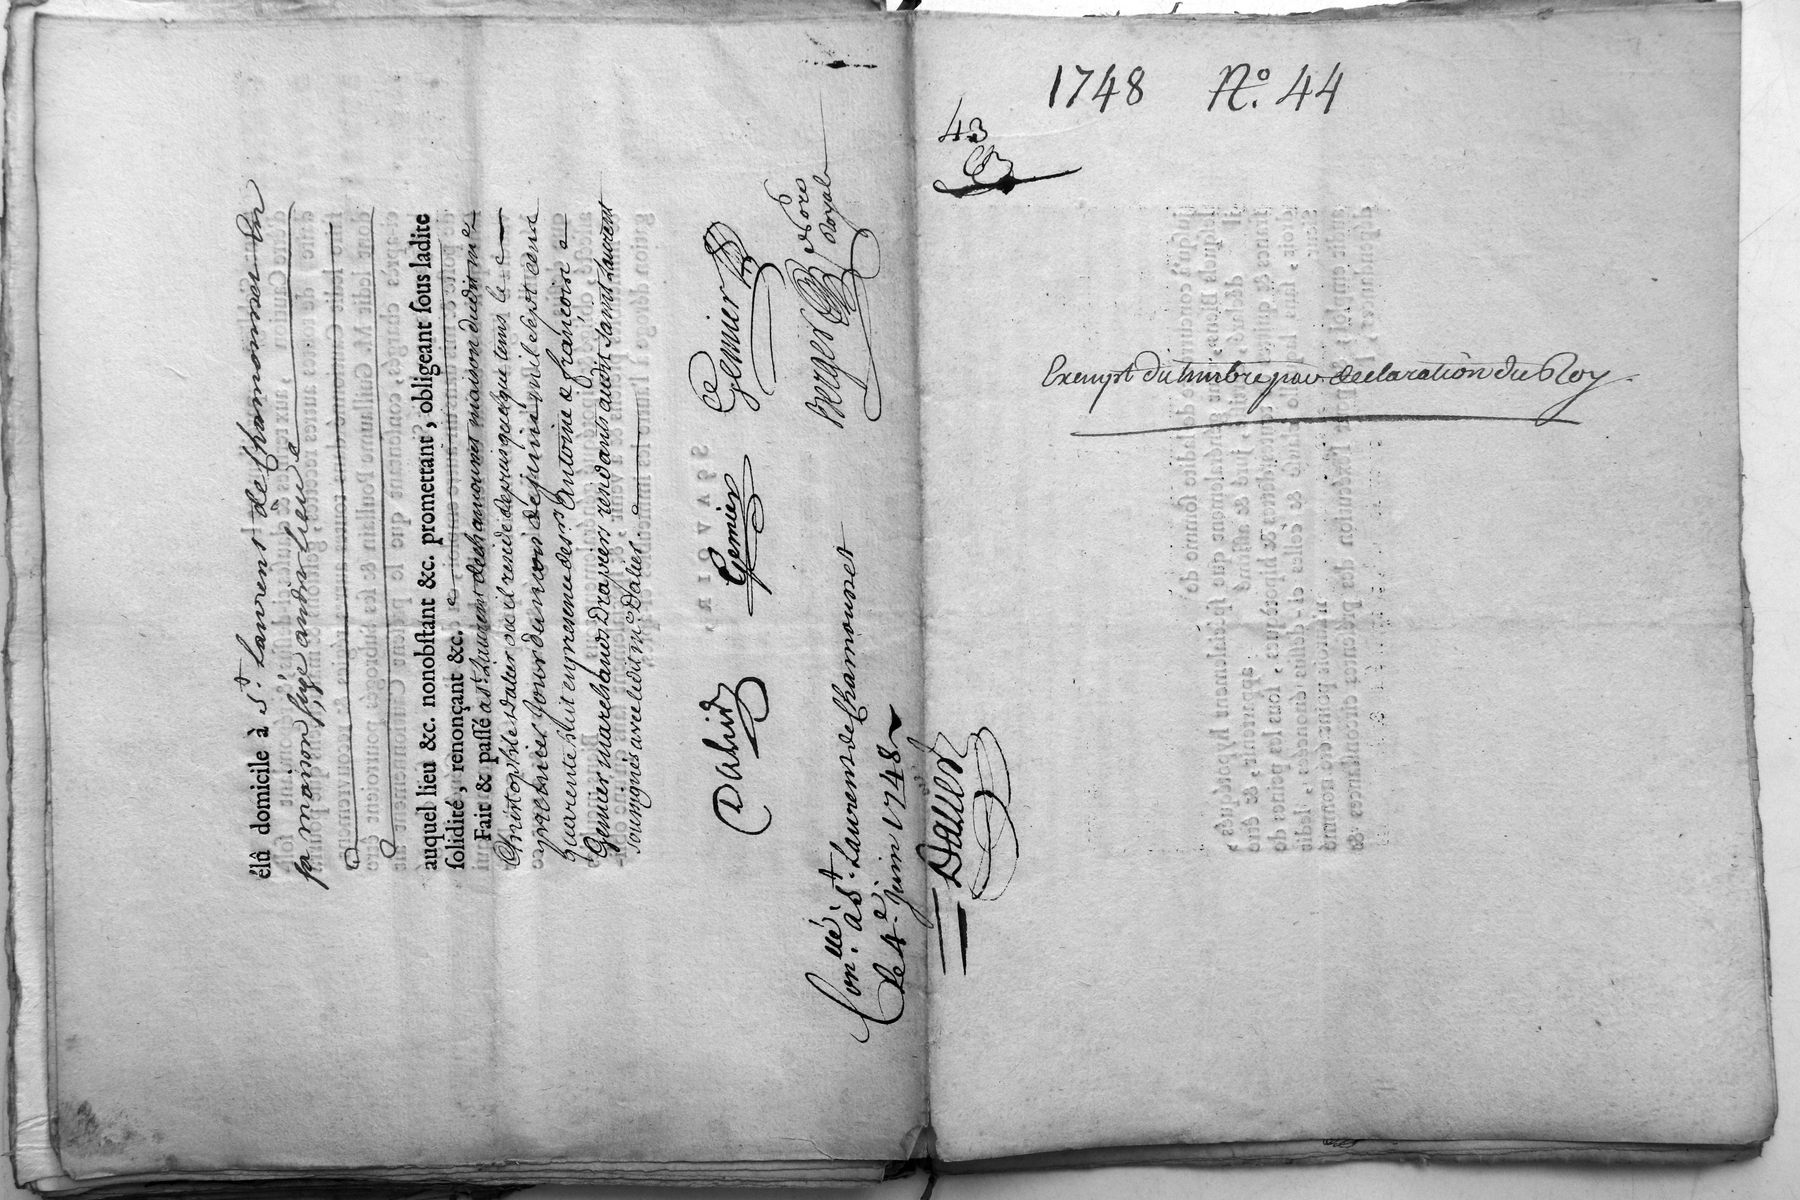 élû domicile à St. Laurent de Chamousset en
sa maison size audit lieu
auquel lieu &c. nonobſtant &c. promettant, obligeant ſous ladite
ſolidité, renonçant &c.
Fait & paſſé a St. Laurent de chamousset maison du
Christophle Dalier ou il reside depuis quelque tems le
premier jour du mois de juin mil sept cens
quarente huit en presence des Srs. Antoine & françois
Gemier marchands Drapiers residants audit Saint Laurent
soussignés avec ledit me. Dalier.
Dalier
Gemier
Gemier
Berger
Nore Royal
Conllé. à St. Laurent de Chamousset
Le 4e. juin 1748
Dalier
1748 No. 44
43
Exempt du timbre par declaration du Roy.